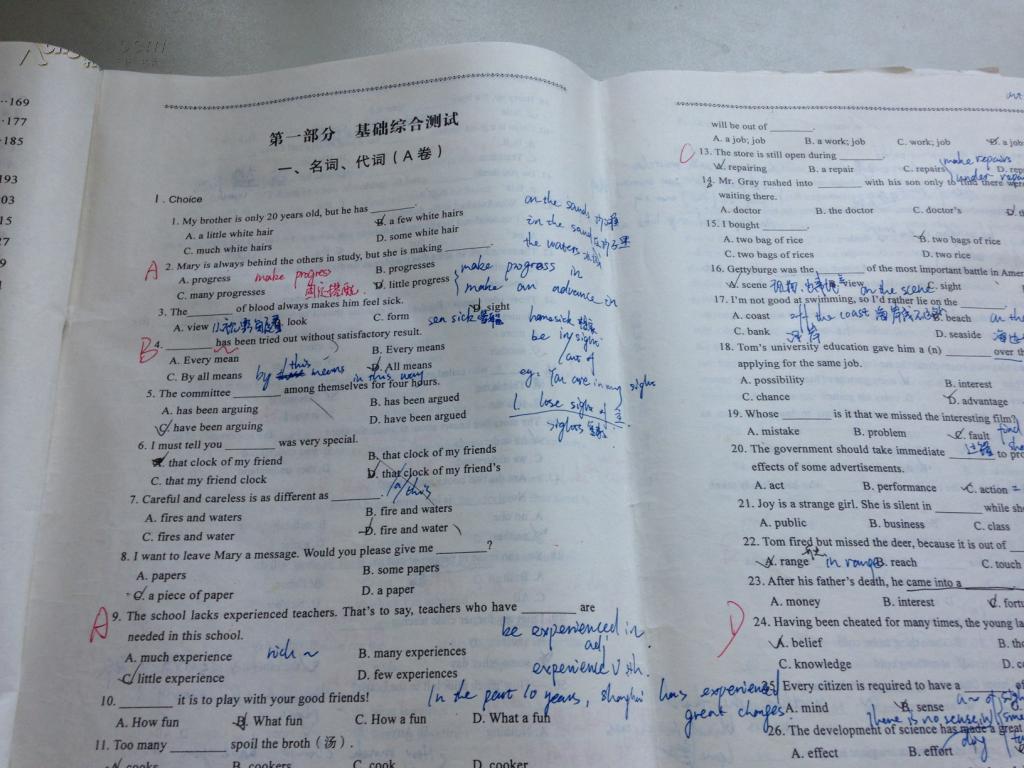 169
177
185
193
第一部分 基础综合测试
一、名词、代词(A卷)
Ⅰ. Choice
1. My brother is only 20 years old, but he has ________.
A. a little white hair
B. a few white hairs
C. much white hairs
D. some white hair
2. Mary is always behind the others in study, but she is making ________.
A. progress
make progress
B. progresses
C. many progresses
固定搭配
D. little progress
make progress in
make an advance in
3. The ________ of blood always makes him feel sick.
A. view
B. look
C. form
D. sight
4. ________ has been tried out without satisfactory result.
A. Every mean
B. Every means
C. By all means
D. All means
by this means
in this way
5. The committee ________ among themselves for four hours.
A. has been arguing
B. has been argued
C. have been arguing
D. have been argued
6. I must tell you ________ was very special.
A. that clock of my friend
B. that clock of my friends
C. that my friend clock
D. that clock of my friend's
a/this
7. Careful and careless is as different as ________.
A. fires and waters
B. fire and waters
C. fires and water
D. fire and water
8. I want to leave Mary a message. Would you please give me ________?
A. papers
B. some papers
C. a piece of paper
D. a paper
9. The school lacks experienced teachers. That's to say, teachers who have ________ are
needed in this school.
A. much experience
rich ~
B. many experiences
C. little experience
D. few experiences
be experienced in
adj
experience
In the past 10 years, shanghai has experienced
great changes.
10. ________ it is to play with your good friends!
A. How fun
B. What fun
C. How a fun
D. What a fun
11. Too many ________ spoil the broth (汤).
A. cooks
B. cookers
C. cook
D. cooker
A
B
A
on the sands
in the sand
the waters
sea sick
home sick
be in sight
out of
eg. You are in my sight
lose sight of
will be out of ________.
A. a job; job
B. a work; job
C. work; job
D. a job
C
13. The store is still open during ________.
A. repairing
B. a repair
C. repairs
make repairs
under repair
14. Mr. Gray rushed into ________ with his son only to find there were
waiting there.
A. doctor
B. the doctor
C. doctor's
15. I bought ________.
A. two bag of rice
B. two bags of rice
C. two bags of rices
D. two rice
16. Gettyburge was the ________ of the most important battle in Amer
A. scene
B. view
C. sight
on the scene
17. I'm not good at swimming, so I'd rather lie on the ________
A. coast
off the coast
B. beach
C. bank
D. seaside
18. Tom's university education gave him a (n) ________ over th
applying for the same job.
A. possibility
B. interest
C. chance
D. advantage
19. Whose ________ is it that we missed the interesting film?
A. mistake
B. problem
C. fault
20. The government should take immediate ________ to pro
effects of some advertisements.
A. act
B. performance
C. action
21. Joy is a strange girl. She is silent in ________ while she
A. public
B. business
C. class
22. Tom fired but missed the deer, because it is out of ________
A. range
in range
B. reach
C. touch
23. After his father's death, he came into a ________
A. money
B. interest
C. fortu
D
24. Having been cheated for many times, the young la
A. belief
B. th
C. knowledge
25. Every citizen is required to have a ________ of
A. mind
B. sense
There is no sense in
26. The development of science has made a great
A. effect
B. effort